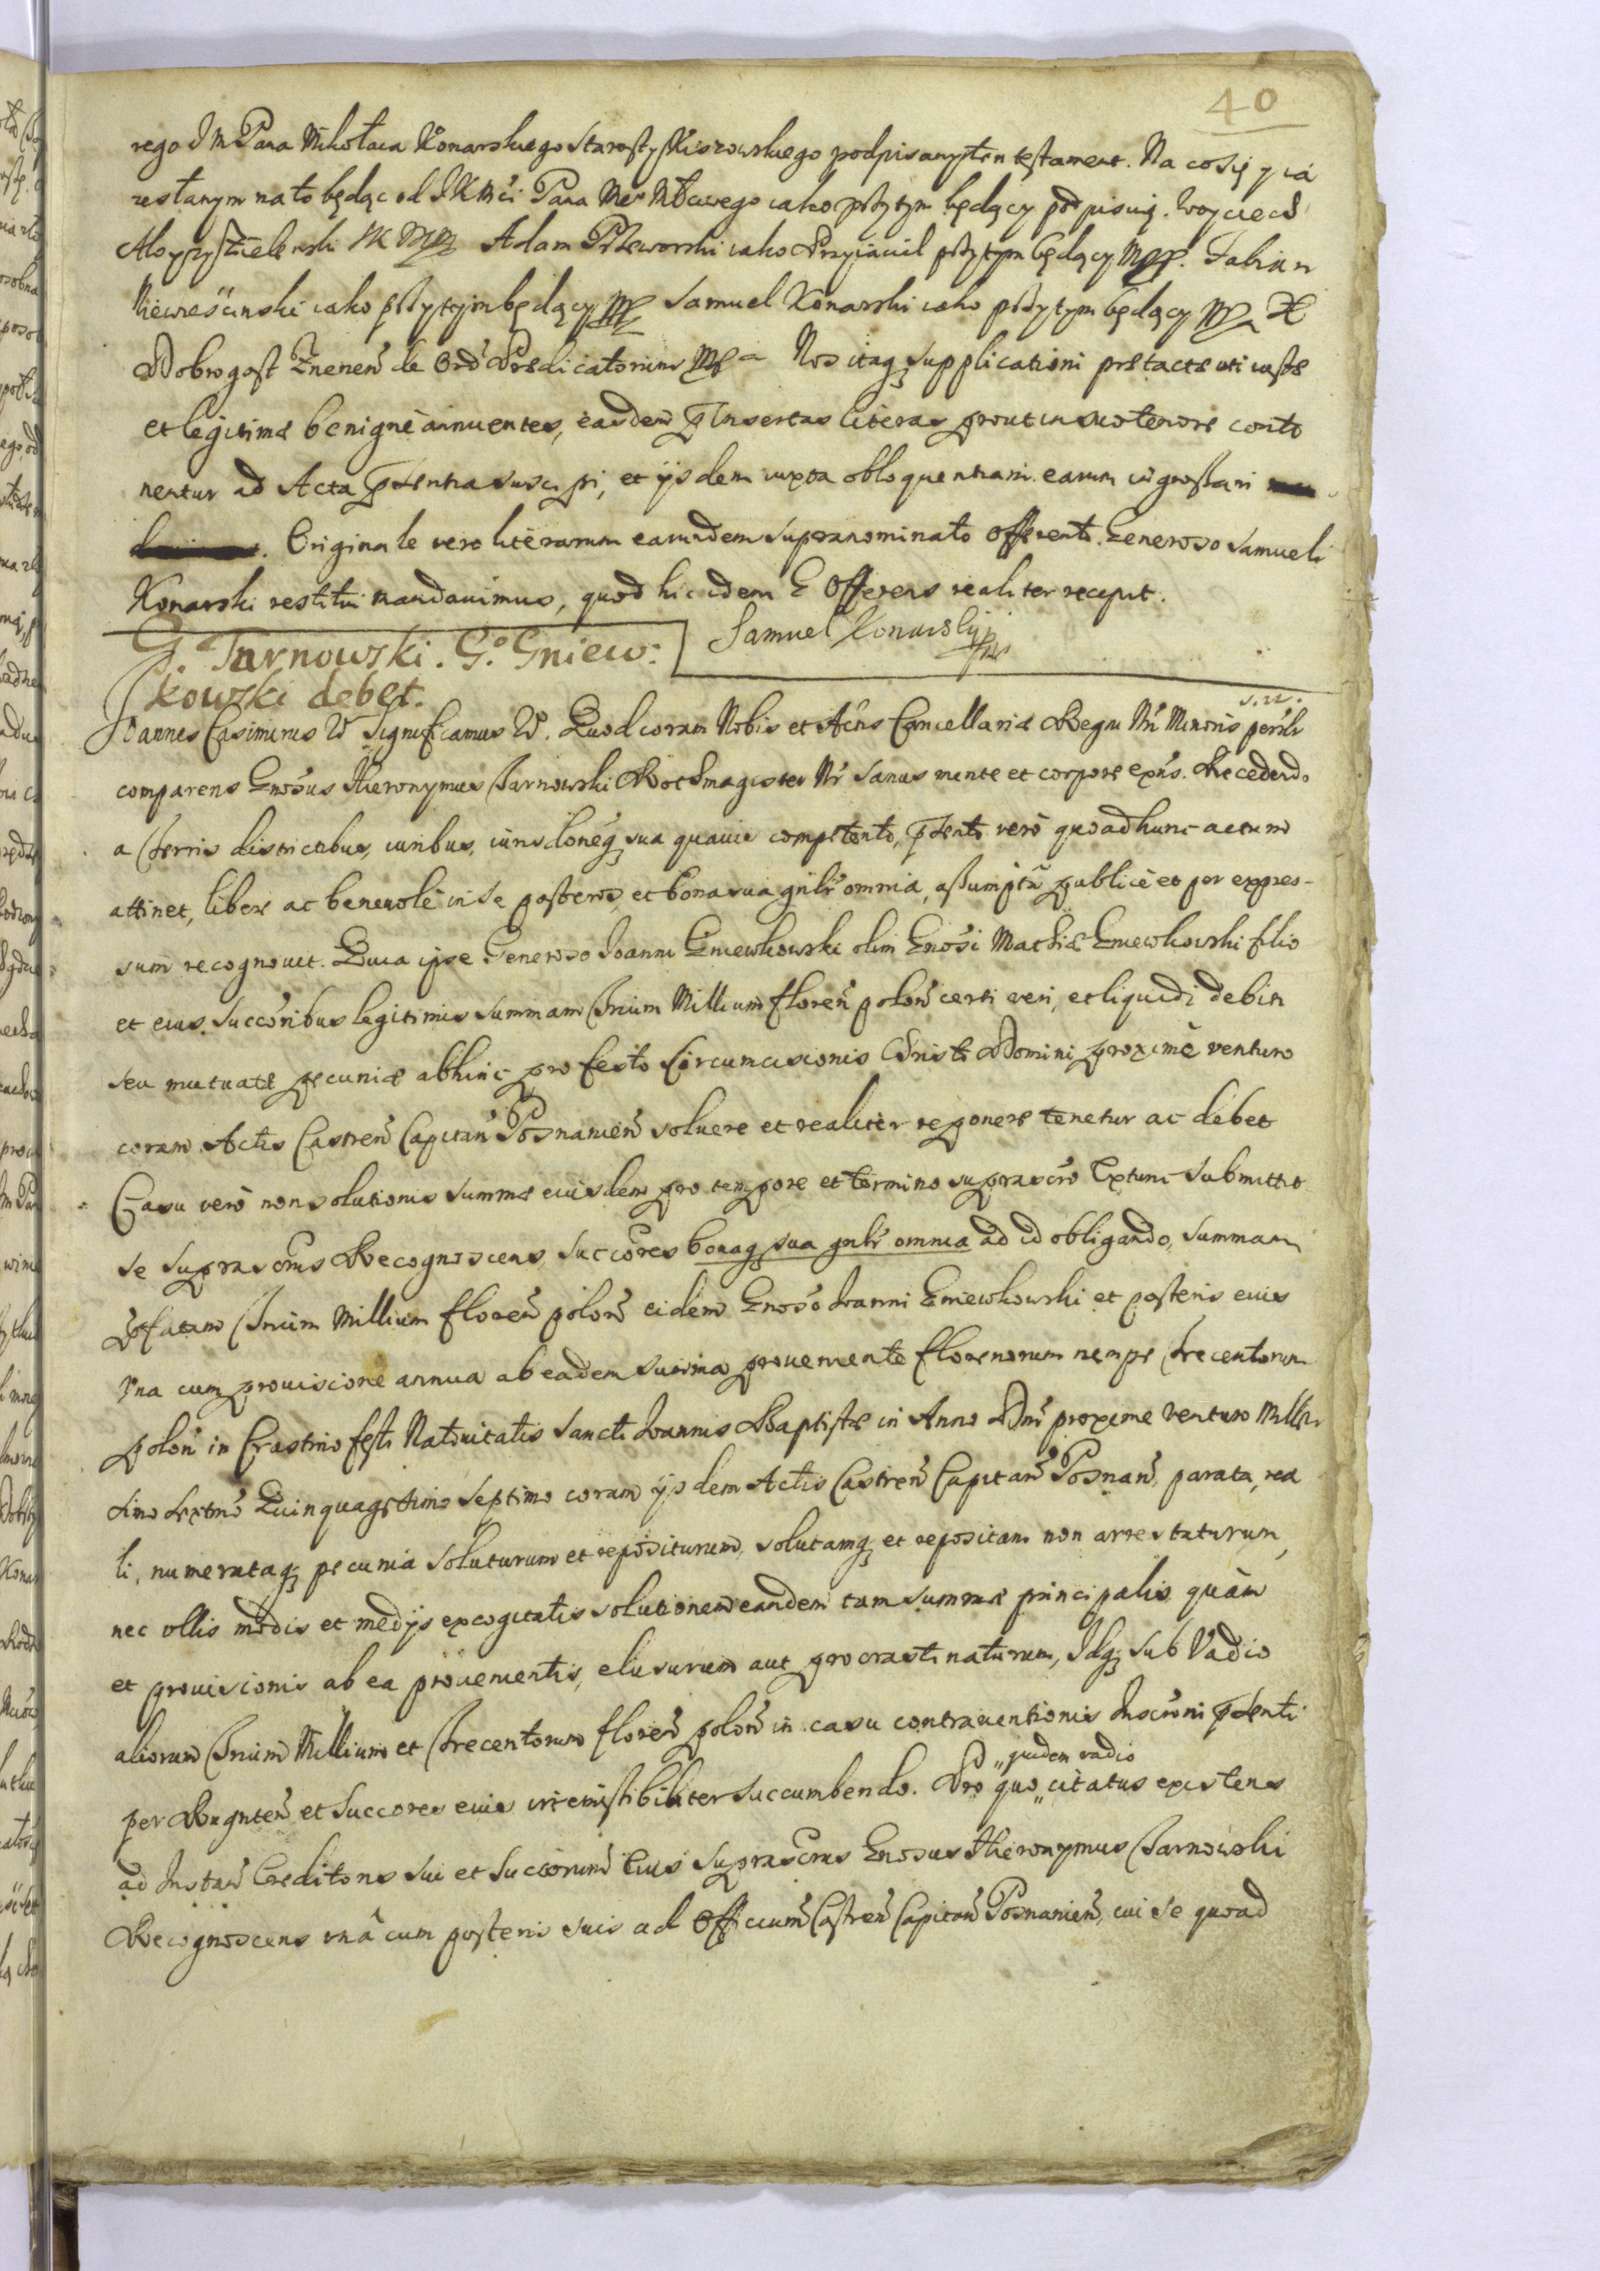 40
rego J M Pana Mikołaia Konarskiego Starosty Kiszowskiego podpisany ten testament. Na co się y ia
zesłanym na to będąc od JKMći Pana Me° Młćiwego iako przytym będący podpisuię. Woyciech
Aloyzy Adam Przeworski iako Przyiaciel przytym będący Mpp. Fabian
iako przytym będący Mpp Samuel Konarski iako przytym będący Mp X
Dobrogost Znenen de Ord Predicatorum Mp Nos itaq supplicationi pretacte uti iuste
et legitime benigne annuentes, easdem pinsertas literas prout in suo tenore conti
nentur ad Acta pntia suscipi, et ijsdem iuxta obloquentiam earum ingrossari
Originale vero literarum earundem supranominato Offerenti Generoso Samueli
Konarski restitui mandauimus, quod hic idem G Offerens realiter recepit.
Samuel Konarskij
G. Tarnowski. G° Gniew:
kowski debet.
s. n.
Joannes Casimirus Significamus Quod coram Nobis et Actis Cancellariæ Regni Nri Minoris persolr
comparens Gnosus Hieronymus Tarnowski Rothmagister Nr Sanus mente et corpore exns. Recedendo
a Terris districtibus, iuribus, iurisdoneq sua quauis competenti, pnti vero quoad hunc actum
attinet, libere ac beneuole in se posteros, et bona sua gnlr omnia, assumptr publice et per expres-
sum recognouit. Quia ipse Generoso Joanni Gniewkowski olim Gnosi Mathiæ Gniewkowski filio
et eius Succoribus legitimis summam Trium Millium floren polon certi veri, et liquidi debiti
seu mutuatæ pecuniæ abhinc pro festo Circumcisionis Christi Domini proxime venturo
coram Actis Castren Capitan Posnanien soluere et realiter reponere tenetur ac debet
Casu vero non solutionis summæ eiusdem pro tempore et termino suprascro Extunc submittit
se suprascrus Recognoscens succores bonaq sua gnlr omnia ad id obligando, summam
pfatam Trium Millium floren polon eidem Gnoso Joanni Gniewkowski et posteris euis
vna cum prouisione annua ab eadem summa proueniente florenorum nempe Trecentorum
polon in Crastino festi Natiuitatis Sancti Joannis Baptistæ in Anno Dni proxime venturo Mille
simo sextmo Quinquagesimo septimo coram ijsdem Actis Castren Capitan Posnan, parata, rea
li, numerataq pecunia soluturum et repositurum, solutamq et repositam non arrestaturum,
nec ullis modis et medijs excogitatis solutionem eandem tam summæ principalis quàm
et prouisionis ab ea prouenientis, elusurum aut procrastinaturum, Idq sub Vadio
aliorum Trium Millium et Trecentorum floren polon in casu contrauentionis Inscroni pnti
per Rognten et succores euis irremissibiliter succumbendo. Pro quo quidem vadio citatus existens
ad Instan Creditoris sui et Succorum Eius suprascrus Gnosus Hieronymus Tarnowski
Recognoscens vnâ cum posteris suis ad Officium Castren Capitan Posnanien, cui se quoad